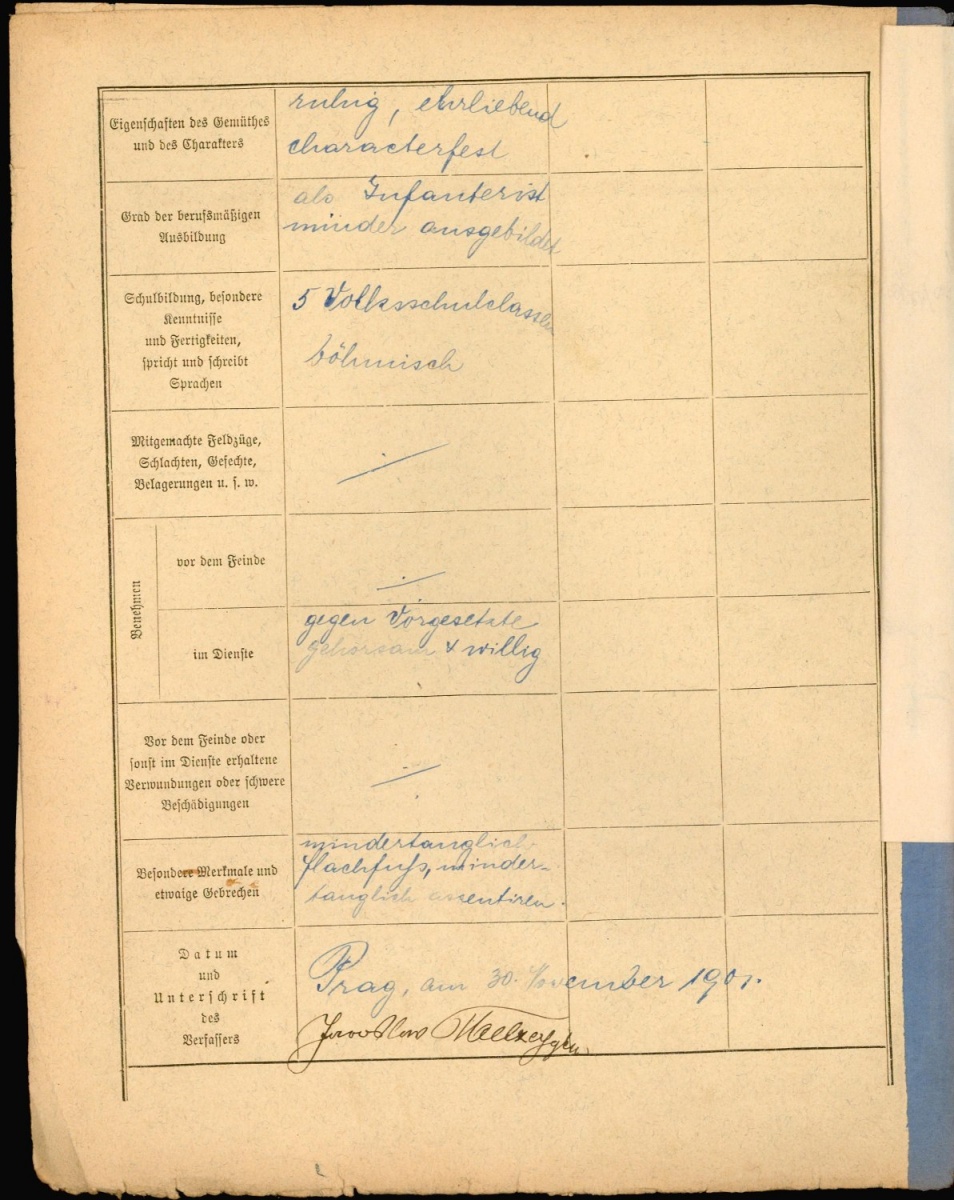 Eigenschaften des Gemüthes
und des Charakters
ruhig, ehrliebend
characterfest
Grad der berufsmäßigen
Ausbildung
als Infanterist
minder ausgebildet
Schulbildung, besondere
Kenntnisse
und Fertigkeiten,
spricht und schreibt
Sprachen
5 Volksschulclassen
böhmisch
Mitgemachte Feldzüge,
Schlachten, Gefechte,
Belagerungen u. s. w.
Benehmen
vor dem Feinde
im Dienste
gegen Vorgesetzte
gehorsam & willig
Vor dem Feinde oder
sonst im Dienste erhaltene
Verwundungen oder schwere
Beschädigungen
Besondere Merkmale und
etwaige Gebrechen
mindertauglich
flachfuß, minder-
tauglich assentiren.
Datum
und
Unterschrift
des
Verfassers
Prag, am 30. November 1901.